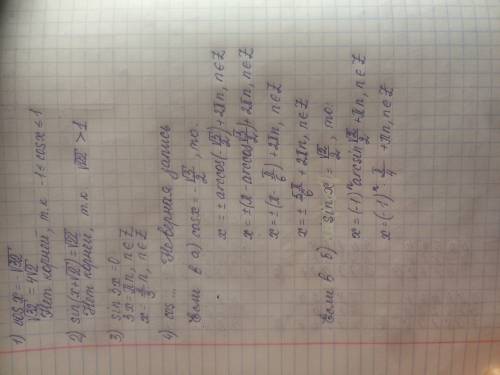 1) cos x = -√32
√32 = 4√2
Нет корней, т.к. -1 ≤ cos x ≤ 1
2) sin(x+√2) = √2
Нет корней, т.к √2 > 1
3) sin 3x = 0
3x = πn, n ∈ Z
x = π/3 n, n ∈ Z
4) cos ... Неверная запись
Если в а) cos x = -√3/2, то
x = ± arccos(-√3/2) + 2πn, n ∈ Z
x = ±(π - arccos √3/2) + 2πn, n ∈ Z
x = ±(π - π/6) + 2πn, n ∈ Z
x = ± 5π/6 + 2πn, n ∈ Z
Если в б) sin x = √2/2, то:
x = (-1)ⁿ arcsin √2/2 + πn, n ∈ Z
x = (-1)ⁿ · π/4 + πn, n ∈ Z